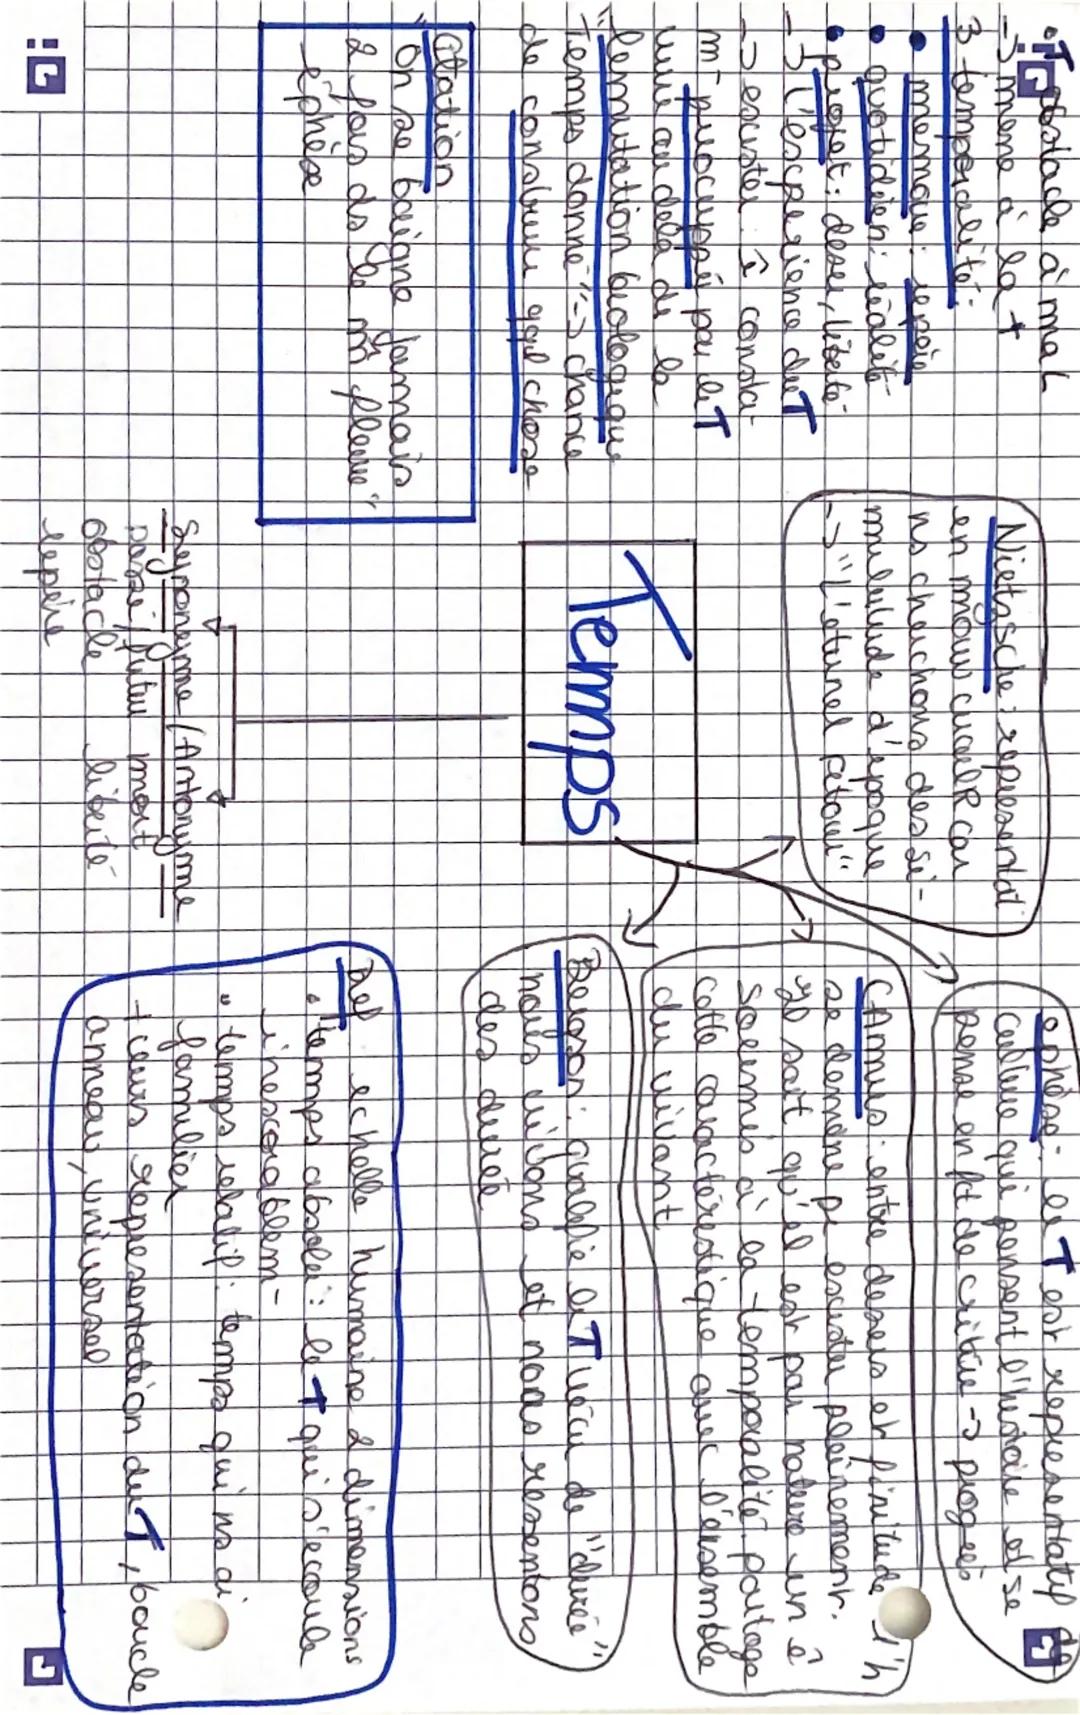 • T obstacle à ma L
-> mène à la +
3 temporalité:
• mémoire: repère
• quotidien: réalité
• projet: désir, liberté
-> l'expérience du T
-> exister: ê consta-
m- préocuppé par le T
vivre au delà de la
"lemutation biologique
Temps donné" -> chance
de construire qql chose
Citation
"On se baigne jamais
2 fois ds le m̂ fleuve"
Ephèse
Nietzsche: représentat
en mouv cucullR car
ns cherchons des si-
mulitude d'époque
-> "L'éternel retour"
Temps
Synonyme / Antonyme
passé, futur mort
obstacle liberté
repère
Ephèse: le T est représentatif de
culture qui pensent l'histoire et se
pense en fit de critère -> progrès
CAmus: entre désirs et finitude l'h
se démène pr exister pleinement.
Il sait qu'il est par nature un ê
soumis à la temporalité, partage
cette caractéristique avec l'ensemble
du vivant
Bergson: qualifie le T vécu de "durée"
nous vivons et nous ressentons
des durée
Def echelle humaine 2 dimensions
• temps absolu: le T qui s'écoule
inexorablem-
• temps relatif: temps qui ns ai
familier
+ieurs représentation du T, boucle
anneau, universel